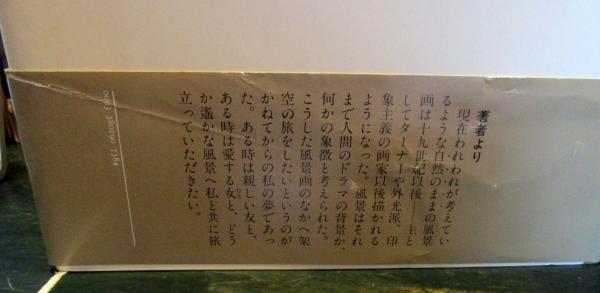 著者より
現在われわれが考えてい
るような自然のままの風景
画は十九世紀以後――主と
してターナーや外光派、印
象主義の画家以後描かれる
ようになった。風景はそれ
まで人間のドラマの背景か、
何かの象徴と考えられた。
こうした風景画のなかへ架
空の旅をしたいというのが
かねてからの私の夢であっ
た。ある時は親しい友と、
ある時は愛する女と、どう
か遥かな風景へ私と共に旅
立っていただきたい。